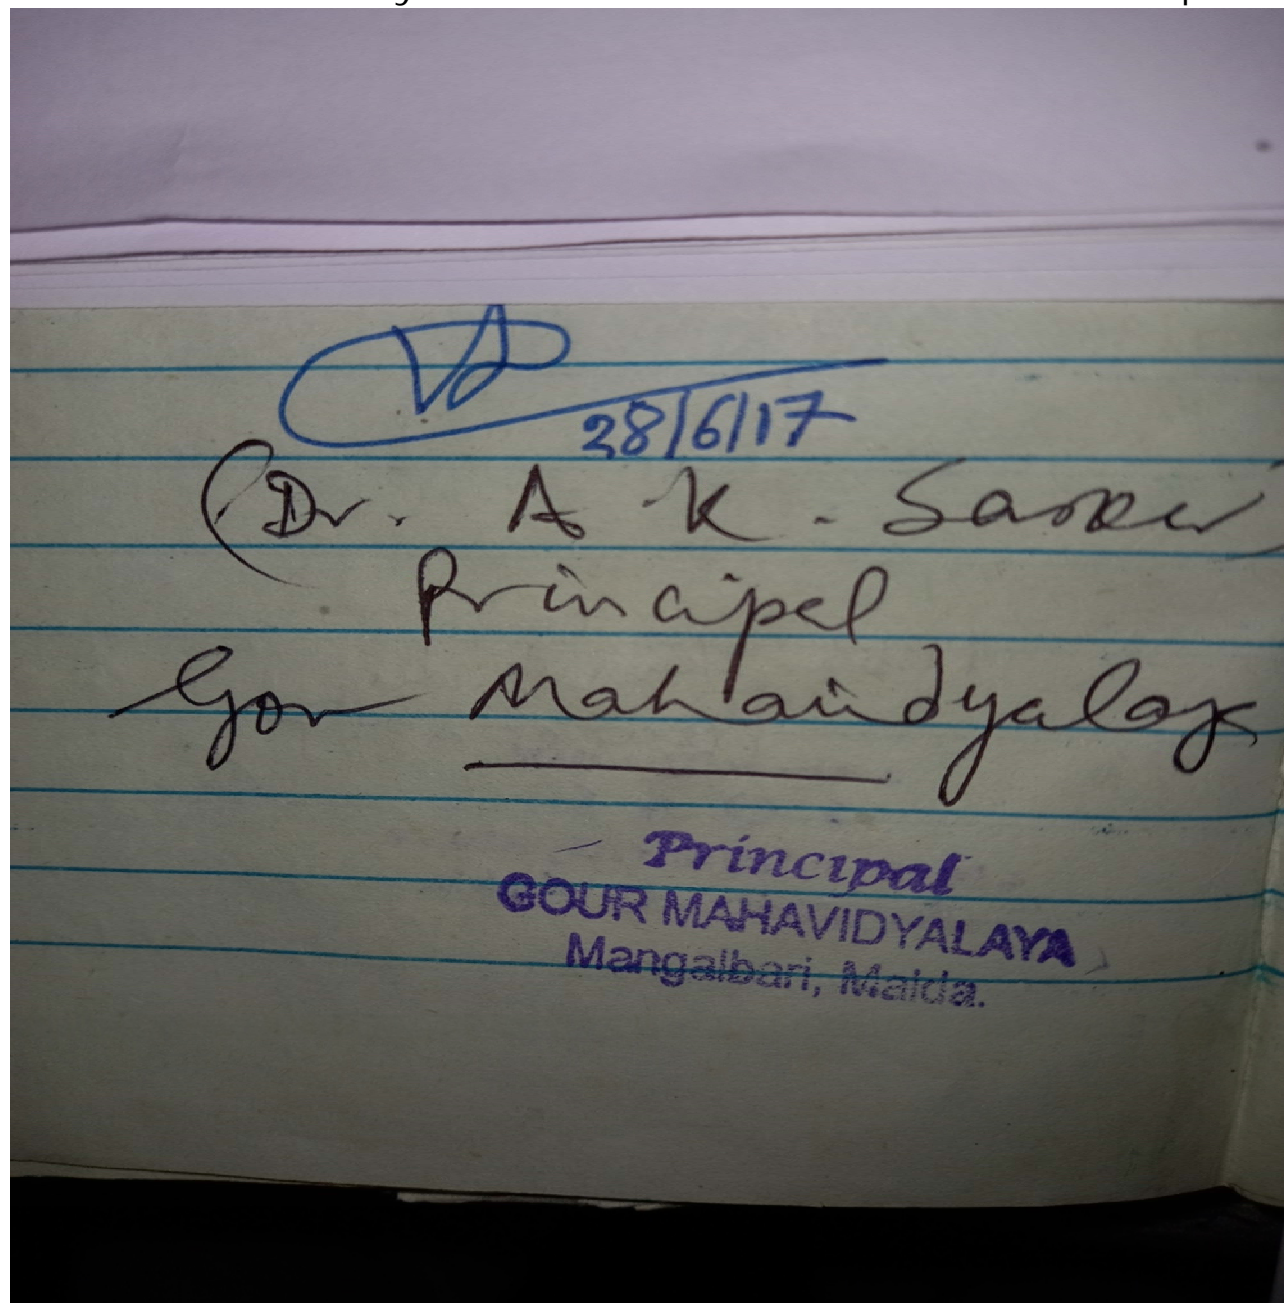 28/6/17
(Dr. A. K. Sarkar)
Principal
Gour Mahavidyalaya
Principal
GOUR MAHAVIDYALAYA
Mangalbari, Malda.